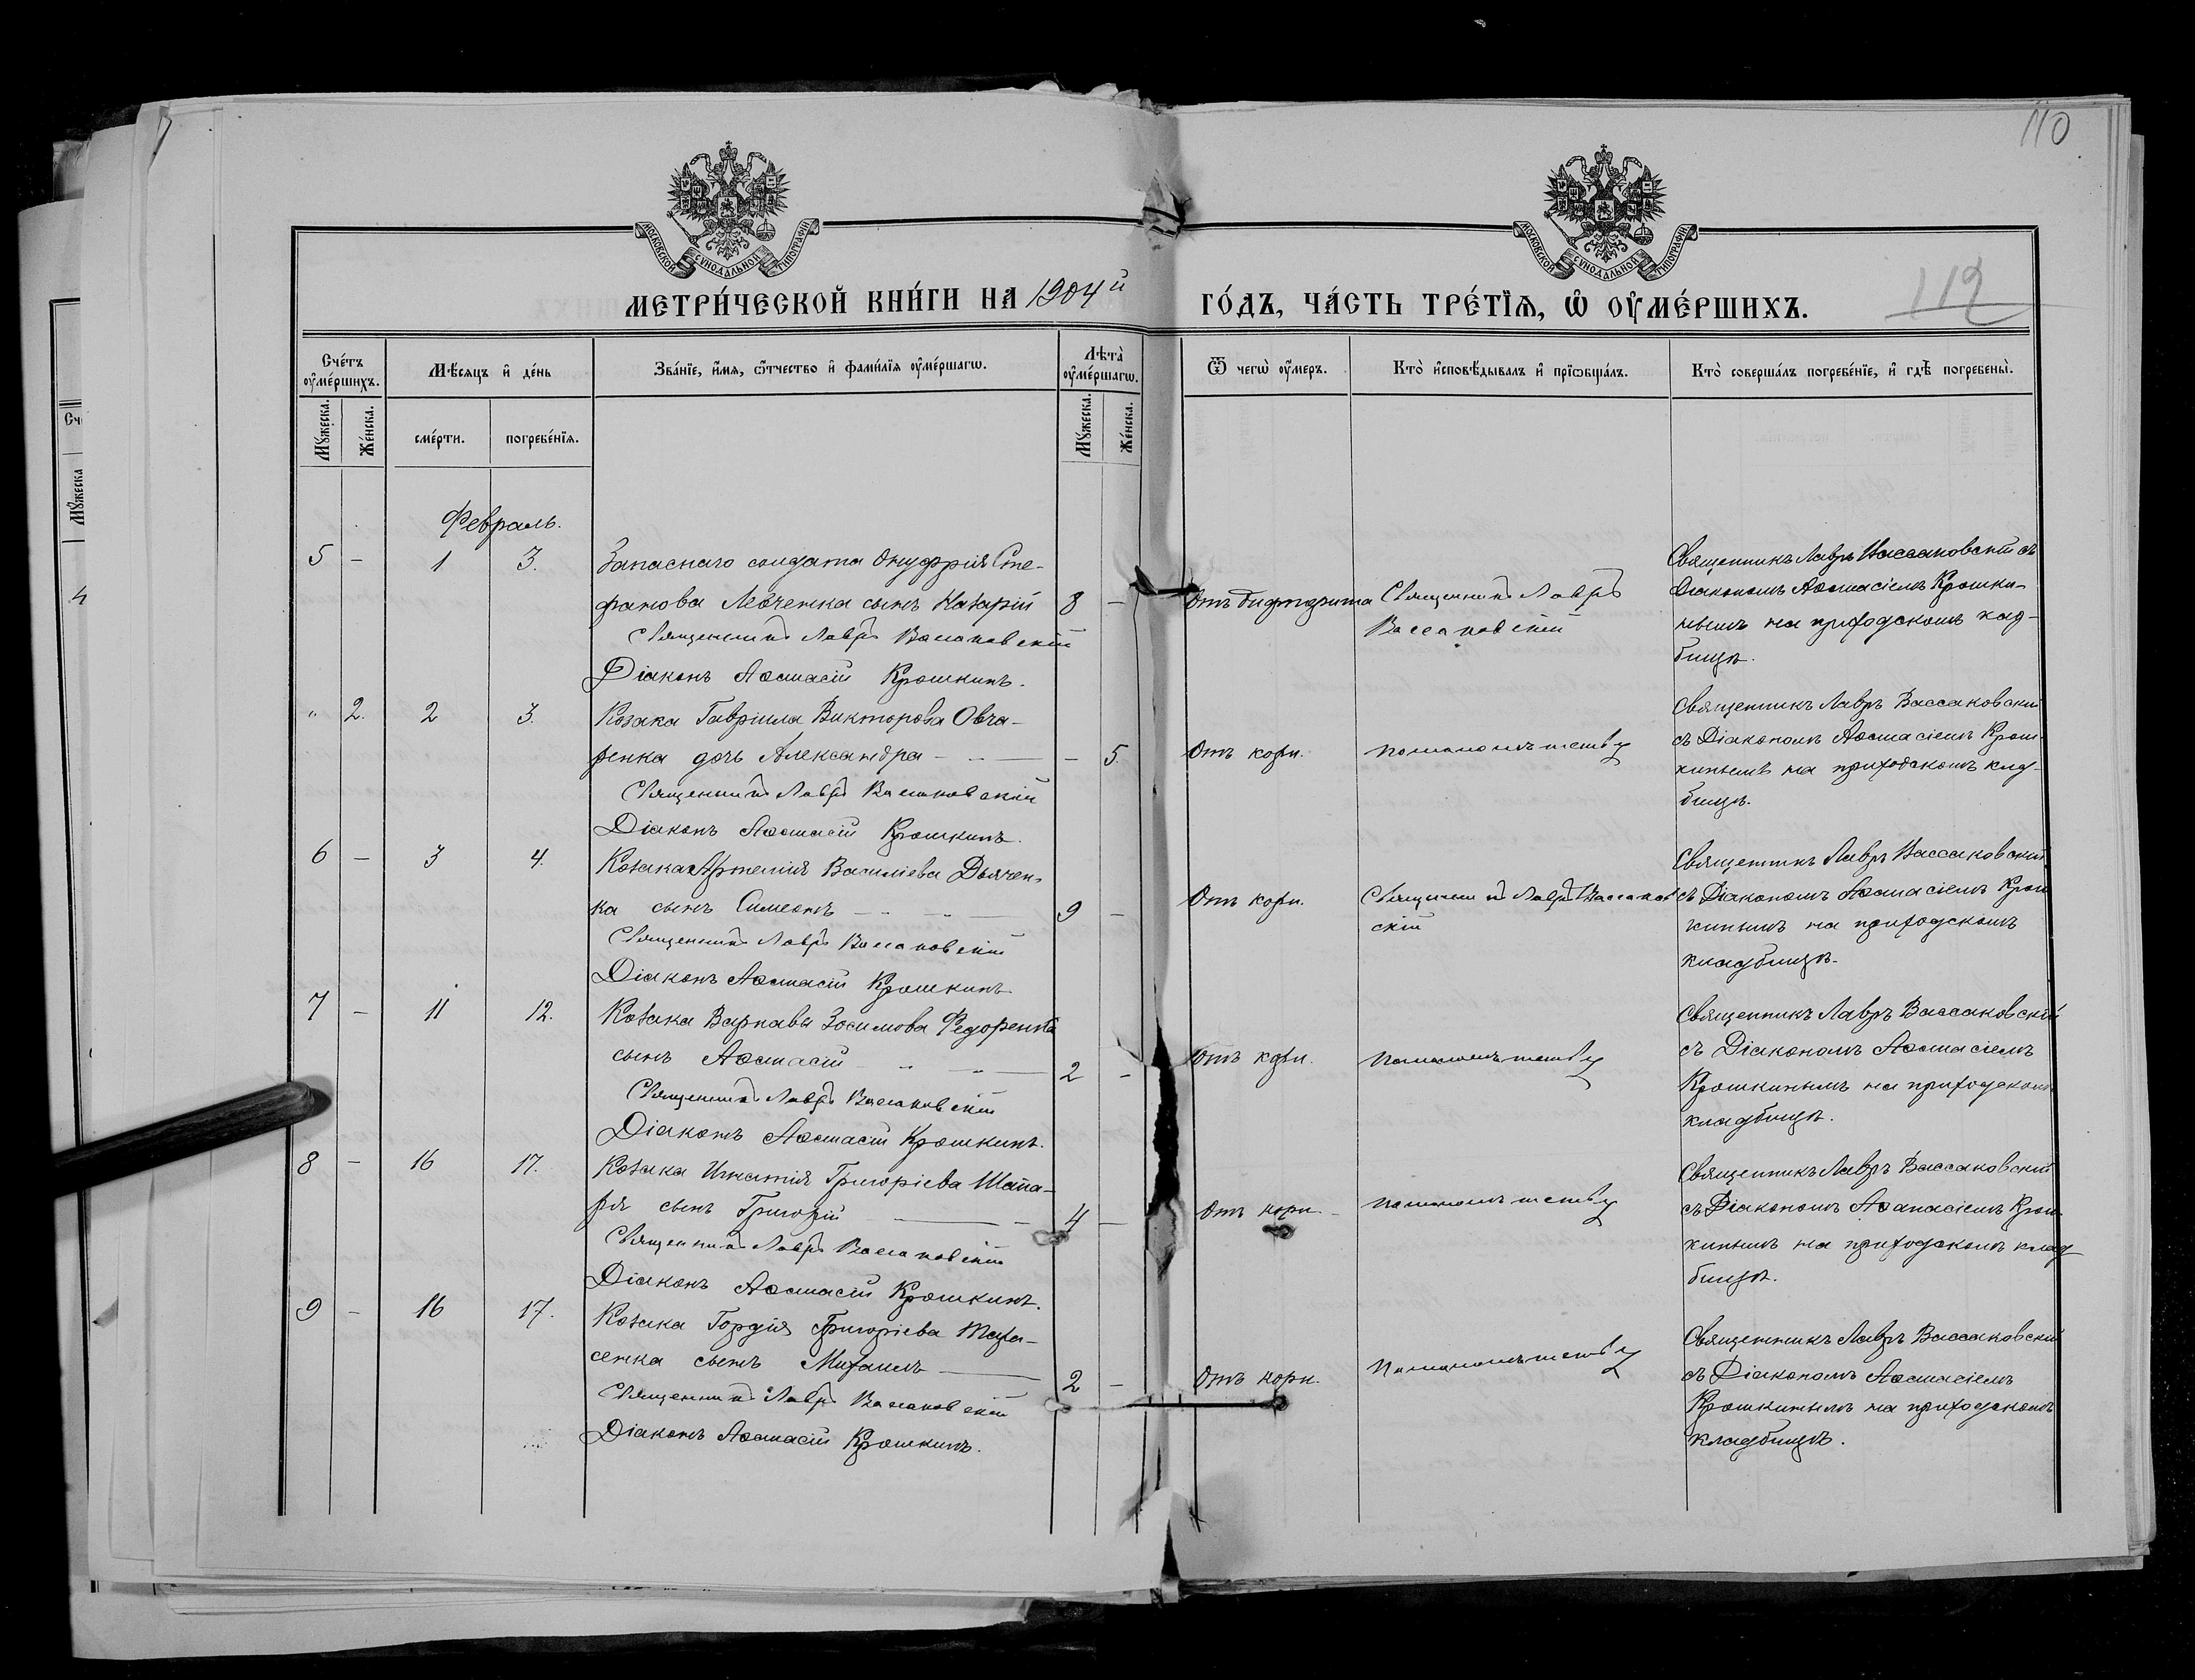 110
МОСКОВСКОЙ СУНОДАЛЬНОЙ ТИПОГРАФІИ
МОСКОВСКОЙ СУНОДАЛЬНОЙ ТИПОГРАФІИ
МЕТРИ́ЧЕСКОЙ КНИ́ГИ НА 1904й ГО́ДЪ, ЧА́СТЬ ТРЕ́ТІѦ, Ѡ ОУ҆МЕ́РШИХЪ.
112
Сче́тъ оу҆ме́ршихъ.
Мѣ́сяцъ и҆ де́нь
Зва́нїе, и҆́мя, ѻ҆́тчество и҆ фами́лїя оу҆ме́ршагѡ.
Лѣта̀ оу҆ме́ршагѡ.
Ѿ чегѡ̀ оу҆́меръ.
Кто̀ и҆сповѣ́дывалъ и҆ прїѡбща́лъ.
Кто̀ соверша́лъ погребе́нїе, и҆ гдѣ̀ погребены̀.
Му́жеска.
Же́нска.
сме́рти.
погребе́нїя.
Му́жеска.
Же́нска.
Февраль.
5 – 1 3. Запаснаго солдата Онуфрія Сте-
фанова Левченка сынъ Назарій 8 –
Священникъ Лавръ Вассаковскій
Діаконъ Аѳанасій Крошкинъ.
Отъ дифтерита
Священникъ Лавръ
Вассаковскій
Священникъ Лавръ Вассаковскій съ
Діакономъ Аѳанасіемъ Крошки-
нымъ на приходскомъ клад-
бищѣ.
" 2. 2 3. Козака Гавріила Викторова Овча-
ренка дочь Александра – 5.
Священникъ Лавръ Вассаковскій
Діаконъ Аѳанасій Крошкинъ.
Отъ кори.
По малолѣтству
Священникъ Лавръ Вассаковскій
съ Діакономъ Аѳанасіемъ Крош-
кинымъ на приходскомъ клад-
бищѣ.
6 – 3 4. Козака Артемія Василіева Дьячен-
ка сынъ Симеонъ 9 –
Священникъ Лавръ Вассаковскій
Діаконъ Аѳанасій Крошкинъ
Отъ кори.
Священникъ Лавръ Вассаков
скій
Священникъ Лавръ Вассаковскій
съ Діакономъ Аѳанасіемъ Крош
кинымъ на приходскомъ
кладбищѣ.
7 – 11 12. Козака Варнавы Зосимова Федоренка
сынъ Аѳанасій 2 –
Священникъ Лавръ Вассаковскій
Діаконъ Аѳанасій Крошкинъ.
Отъ кори.
По малолѣтству
Священникъ Лавръ Вассаковскій
съ Діакономъ Аѳанасіемъ
Крошкинымъ на приходскомъ
кладбищѣ.
8 – 16 17. Козака Игнатія Григоріева Шапа-
ря сынъ Григорій 4 –
Священникъ Лавръ Вассаковскій
Діаконъ Аѳанасій Крошкинъ.
Отъ кори
По малолѣтству
Священникъ Лавръ Вассаковскій
съ Діакономъ Аѳанасіемъ Крош-
кинымъ на приходскомъ клад
бищѣ.
9 – 16 17. Козака Гордія Григоріева
сенка сынъ Михаилъ 2 –
Священникъ Лавръ Вассаковскій
Діаконъ Аѳанасій Крошкинъ.
Отъ кори.
По малолѣтству
Священникъ Лавръ Вассаковскій
съ Діакономъ Аѳанасіемъ
Крошкинымъ на приходскомъ
кладбищѣ.